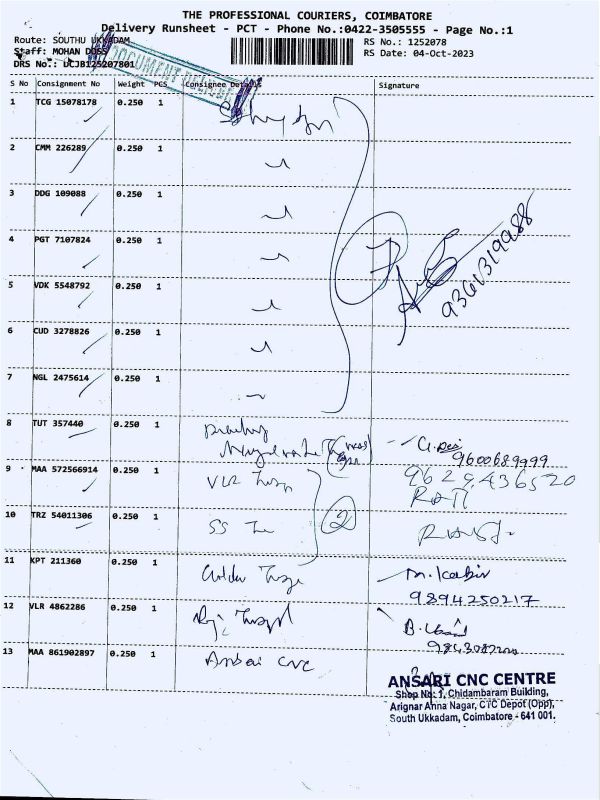 THE PROFESSIONAL COURIERS, COIMBATORE
Delivery Runsheet - PCT - Phone No.:0422-3505555 - Page No.:1
Route: SOUTHU UKKADAM
RS No.: 1252078
Staff: MOHAN DOSS
RS Date: 04-Oct-2023
DRS No.: UCJB125207801
DOCUMENT
S No Consignment No Weight PCS Consignee Details Signature
1 TCG 15078178 0.250 1
2 CMM 226289 0.250 1
3 DDG 109088 0.250 1
4 PGT 7107824 0.250 1
9361319988
5 VDK 5548792 0.250 1
6 CUD 3278826 0.250 1
7 NGL 2475614 0.250 1
8 TUT 357440 0.250 1
9600689999
9 MAA 572566914 0.250 1 VLR 9629436520
10 TRZ 54011306 0.250 1 SS
2
11 KPT 211360 0.250 1 Golden M. Kabir
9894250217
12 VLR 4862286 0.250 1 B.
13 MAA 861902897 0.250 1 Ansari CNC
ANSARI CNC CENTRE
Shop No: 1, Chidambaram Building,
Arignar Anna Nagar, CTC Depot (Opp),
South Ukkadam, Coimbatore - 641 001.